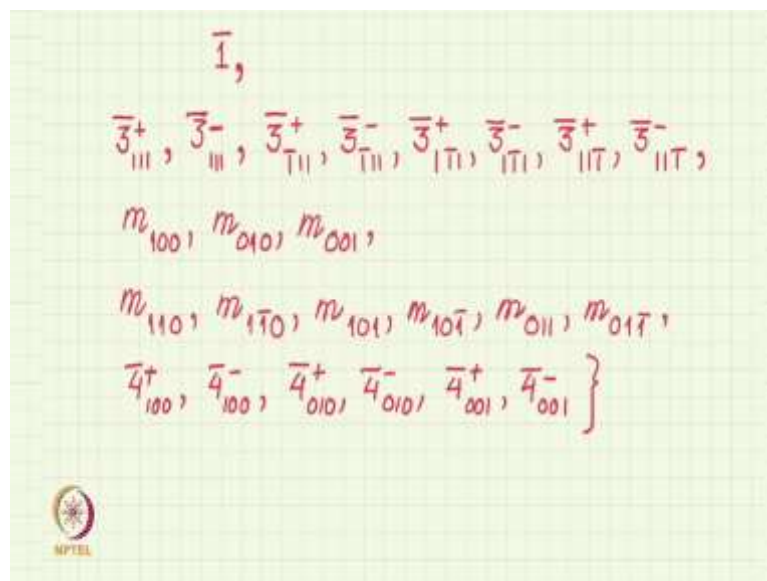 1̅,
3̅⁺₁₁₁, 3̅⁻₁₁₁, 3̅⁺₁̅₁₁, 3̅⁻₁̅₁₁, 3̅⁺₁₁̅₁, 3̅⁻₁₁̅₁, 3̅⁺₁₁₁̅, 3̅⁻₁₁₁̅,
m₁₀₀, m₀₁₀, m₀₀₁,
m₁₁₀, m₁₁̅₀, m₁₀₁, m₁₀₁̅, m₀₁₁, m₀₁₁̅,
4̅⁺₁₀₀, 4̅⁻₁₀₀, 4̅⁺₀₁₀, 4̅⁻₀₁₀, 4̅⁺₀₀₁, 4̅⁻₀₀₁ }
NPTEL